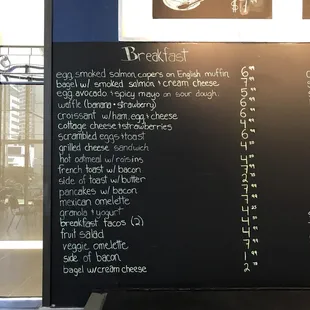 Breakfast
egg, smoked salmon, capers on English muffin 6
bagel w/ smoked salmon + cream cheese 7
egg avocado + spicy mayo on sour dough. 5
waffle (banana + strawberry) 6
croissant w/ ham, egg + cheese 6
cottage cheese + strawberries 4
scrambled eggs + toast 6
grilled cheese sandwich 4
hot oatmeal w/ raisins 4
french toast w/ bacon 7
side of toast w/ butter 2
pancakes w/ bacon 7
mexican omelette 7
granola + yogurt 4
breakfast tacos (2) 4
fruit salad 4
veggie omelette 7
side of bacon 1
bagel w/ cream cheese 2